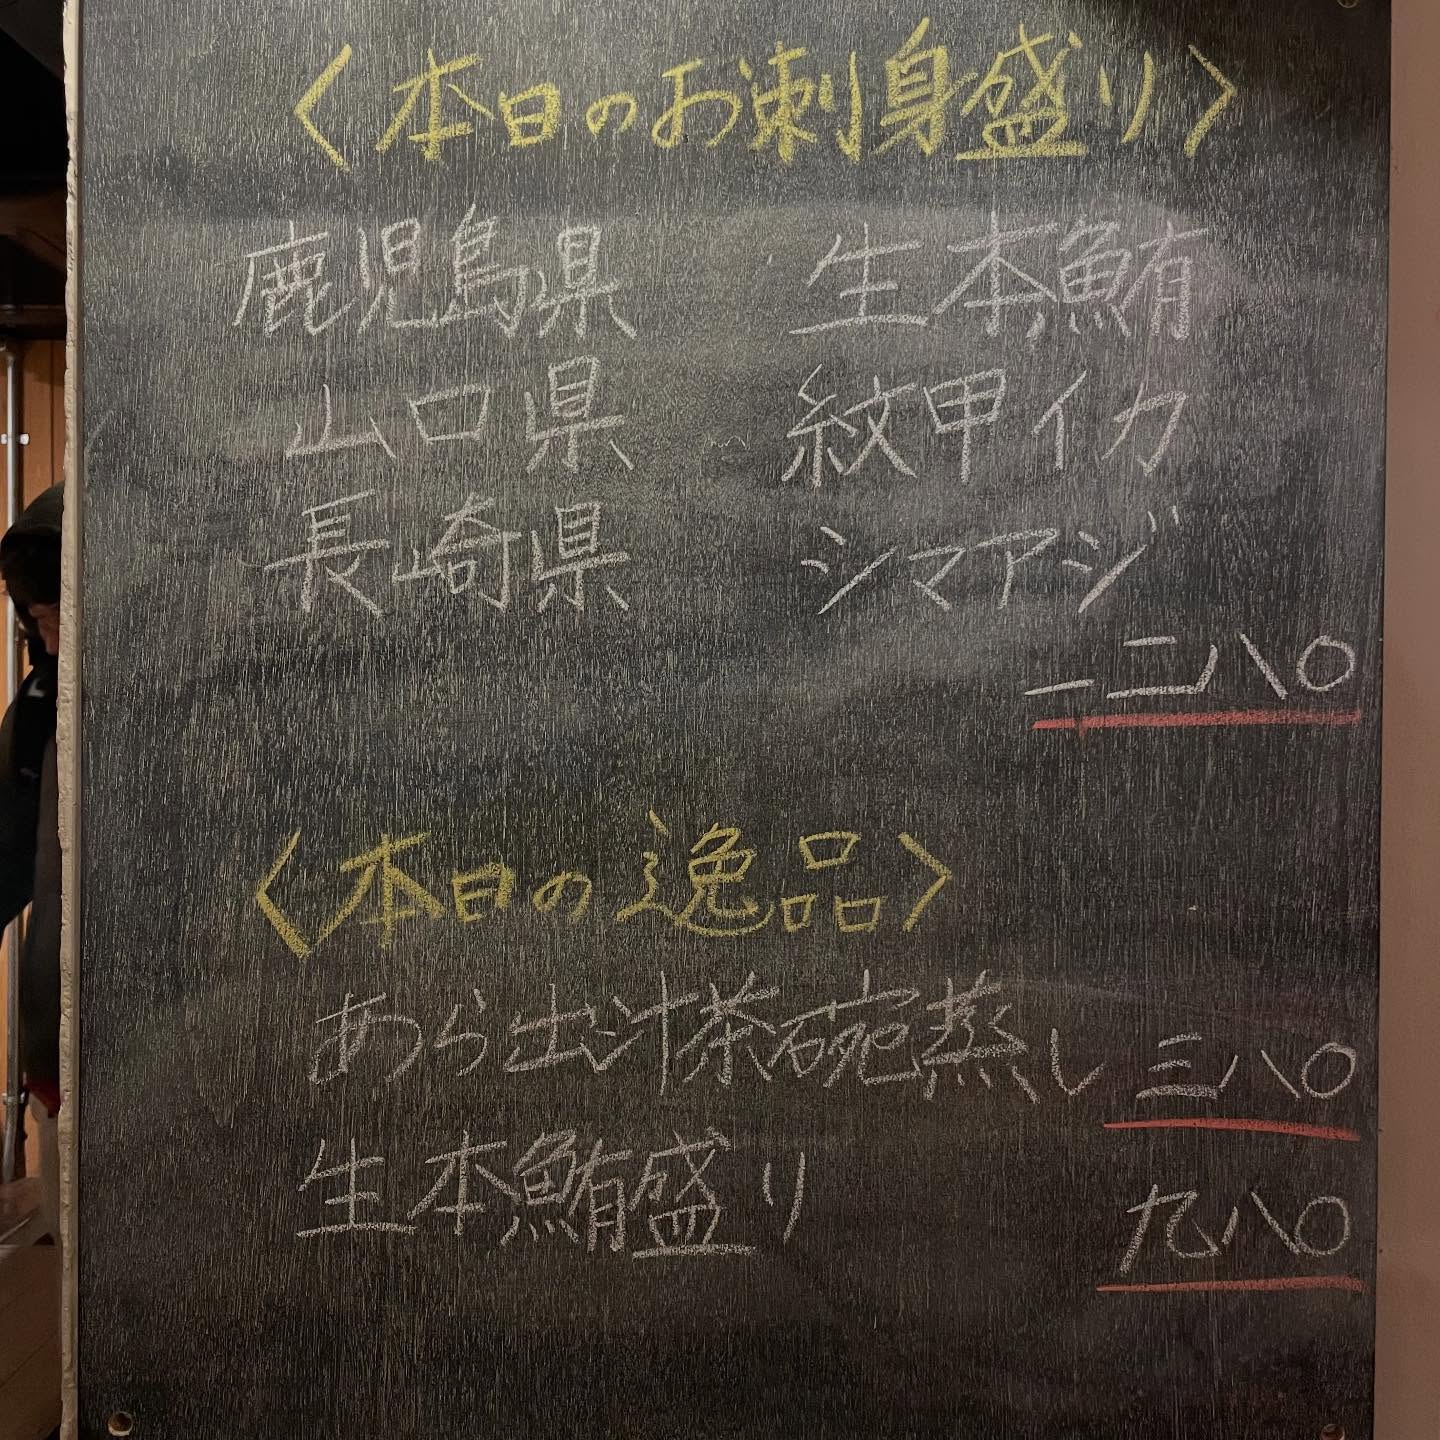 〈本日のお刺身盛り〉
鹿児島県 生本鮪
山口県 紋甲イカ
長崎県 シマアジ
一二八〇
〈本日の逸品〉
あら出汁茶碗蒸し 三八〇
生本鮪盛り 九八〇